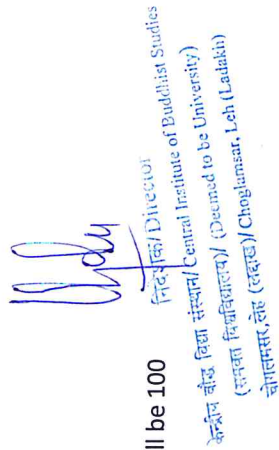 ll be 100
निदेशक/Director
केन्द्रीय बौद्ध विद्या संस्थान/Central Institute of Buddhist Studies
(समवत विश्वविद्यालय)/ (Deemed to be University)
चोगलमसर, लेह (लद्दाख)/ Choglamsar, Leh (Ladakh)